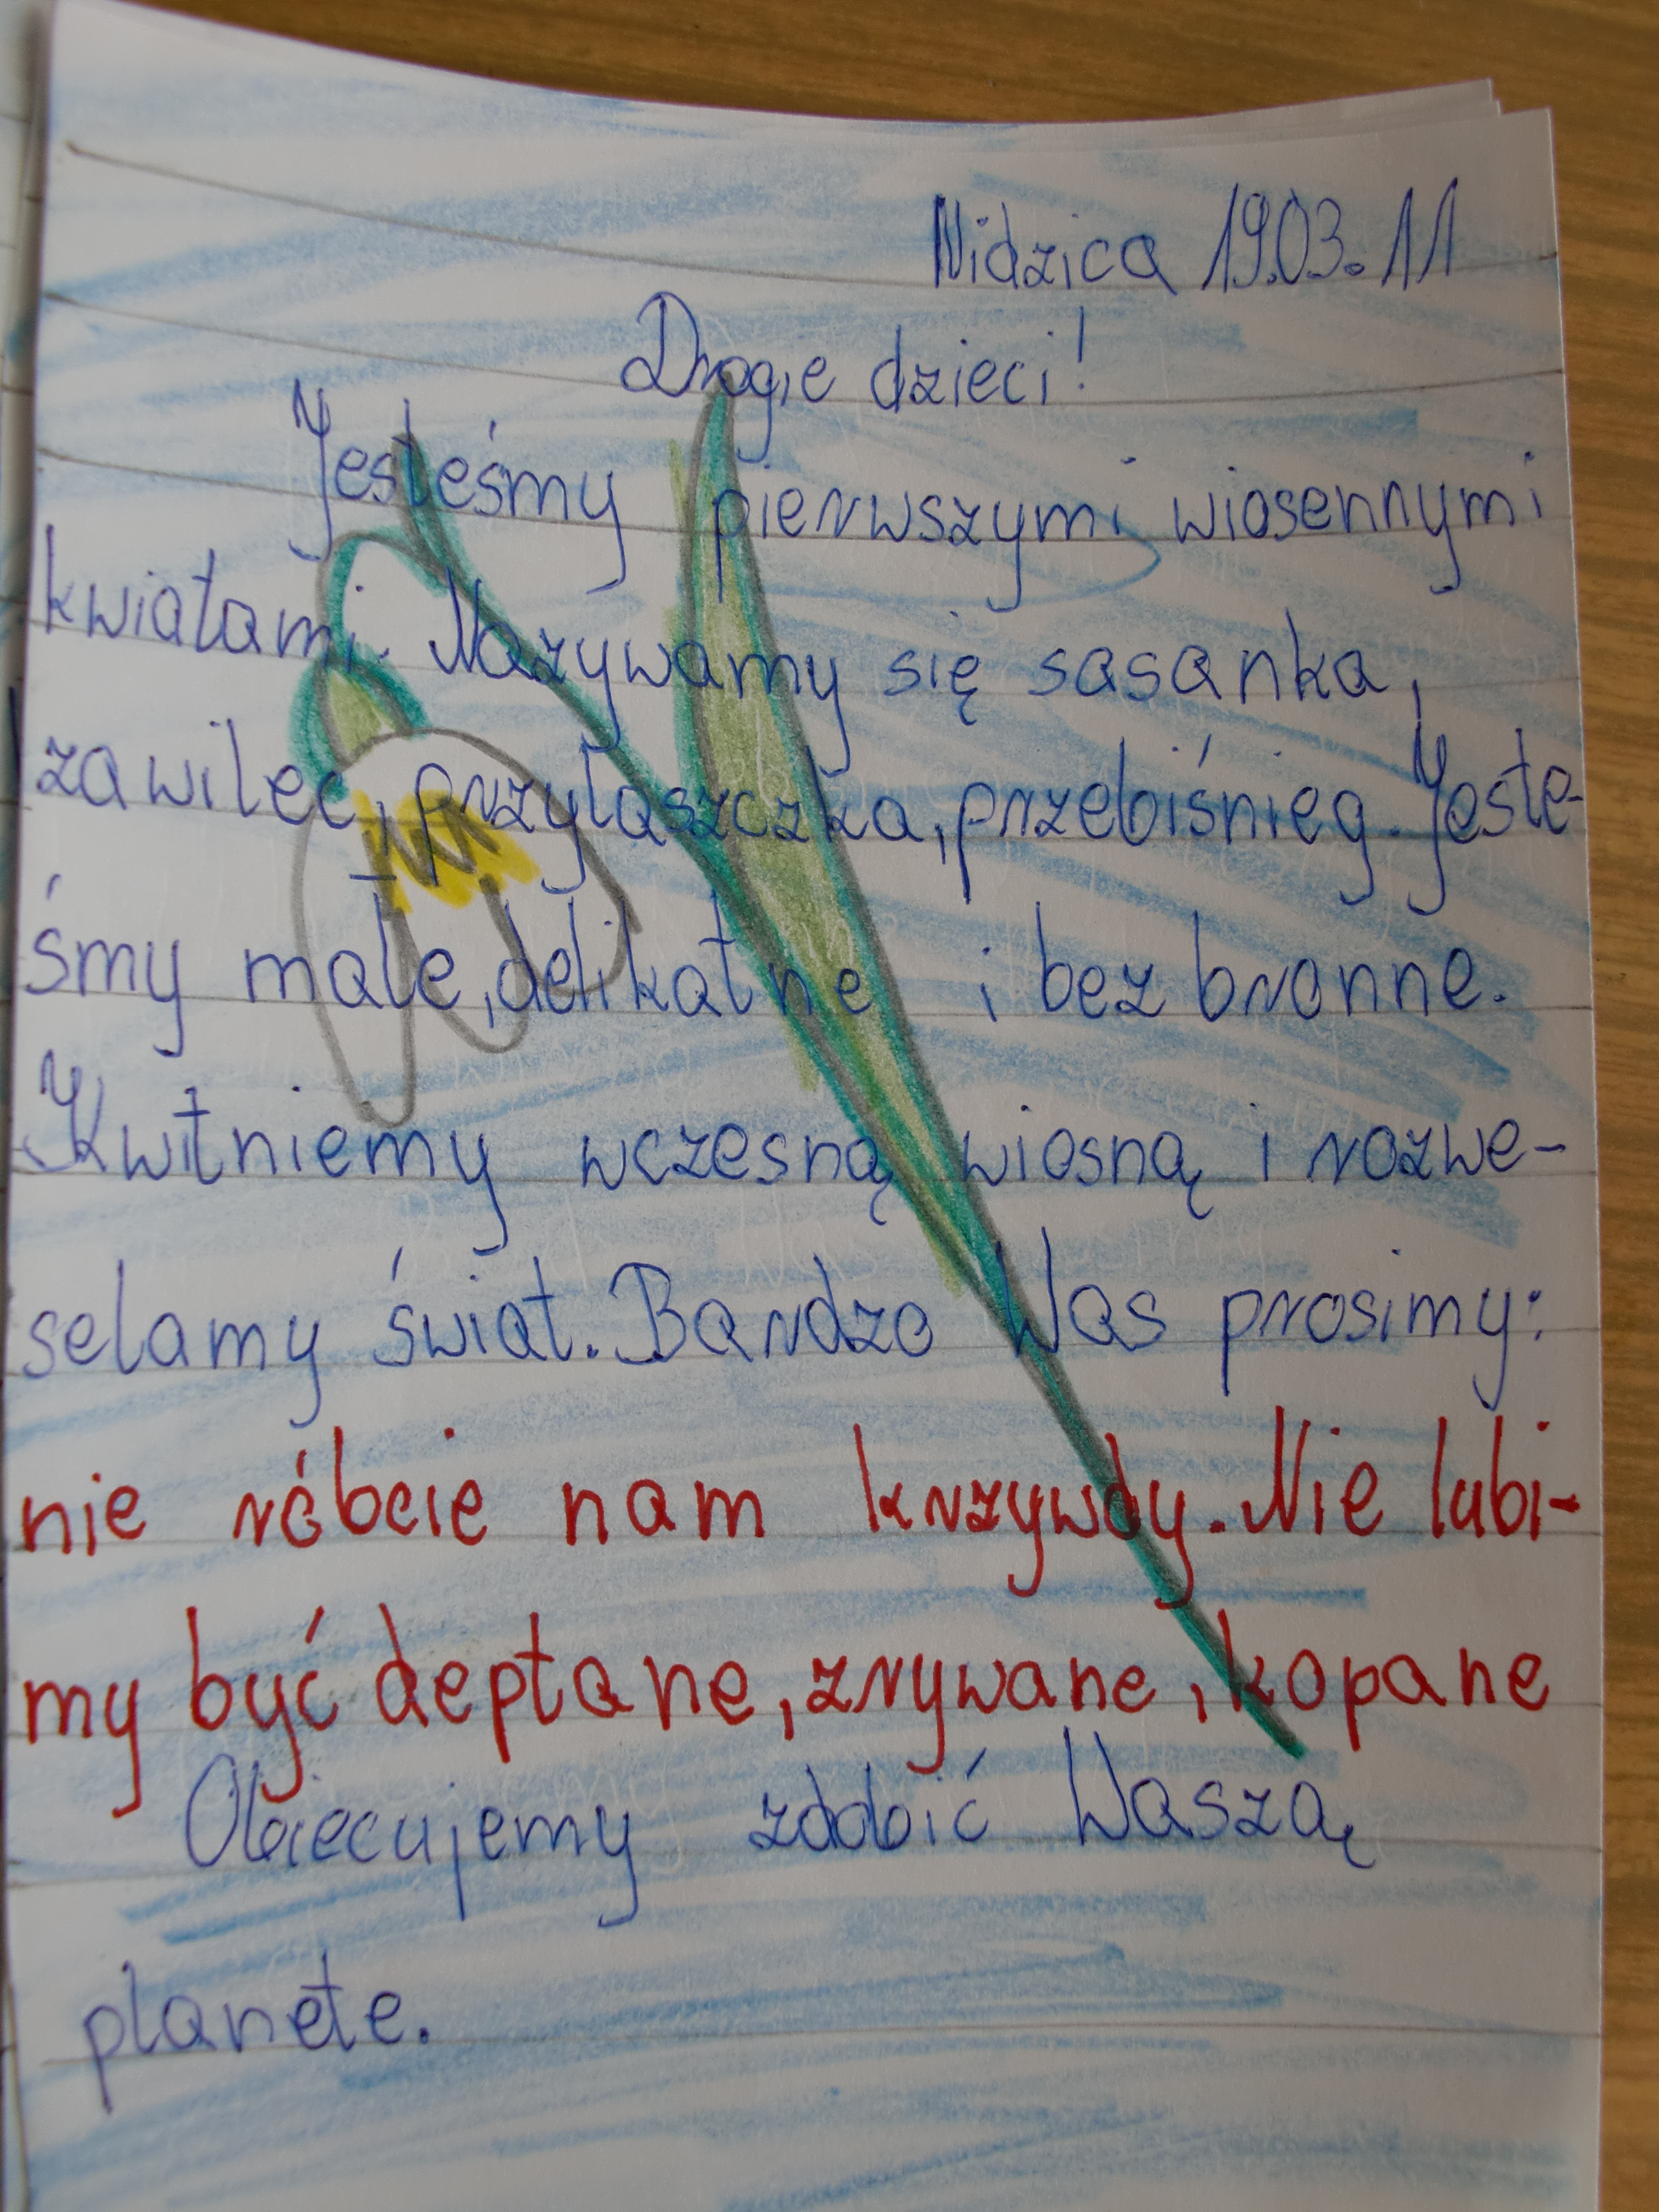 Nidzica 19.03.11
Drogie dzieci!
Jesteśmy pierwszymi wiosennymi
kwiatami. Nazywamy się sasanka,
zawilec, przylaszczka, przebiśnieg. Jeste-
śmy małe, delikatne i bez bronne.
Kwitniemy wczesną wiosną i rozwe-
selamy świat. Bardzo Was prosimy:
nie róbcie nam krzywdy. Nie lubi-
my być deptane, zrywane, kopane
Obiecujemy zdobić Waszą
planete.